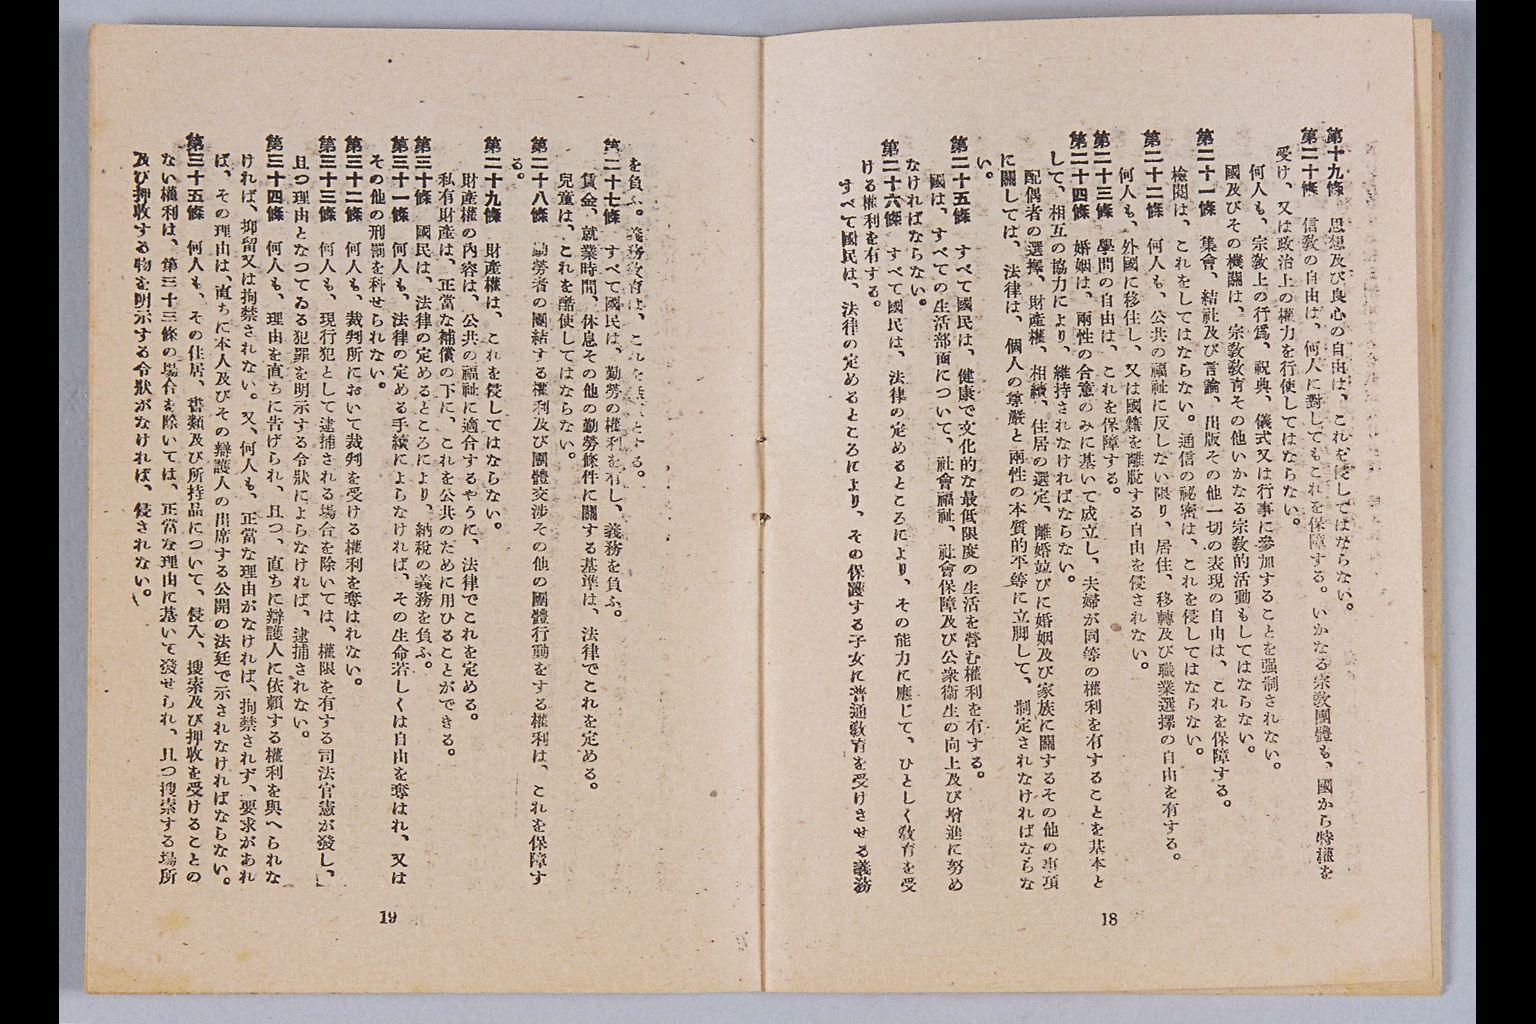 第十九條　思想及び良心の自由は、これを侵してはならない。
第二十條　信敎の自由は、何人に對してもこれを保障する。いかなる宗敎團體も、國から特權を
受け、又は政治上の權力を行使してはならない。
何人も、宗敎上の行爲、祝典、儀式又は行事に參加することを强制されない。
國及びその機關は、宗敎敎育その他いかなる宗敎的活動もしてはならない。
第二十一條　集會、結社及び言論、出版その他一切の表現の自由は、これを保障する。
檢閱は、これをしてはならない。通信の祕密は、これを侵してはならない。
第二十二條　何人も、公共の福祉に反しない限り、居住、移轉及び職業選擇の自由を有する。
何人も、外國に移住し、又は國籍を離脫する自由を侵されない。
第二十三條　學問の自由は、これを保障する。
第二十四條　婚姻は、兩性の合意のみに基いて成立し、夫婦が同等の權利を有することを基本と
して、相互の協力により、維持されなければならない。
配偶者の選擇、財產權、相續、住居の選定、離婚並びに婚姻及び家族に關するその他の事項
に關しては、法律は、個人の尊嚴と兩性の本質的平等に立脚して、制定されなければならな
い。
第二十五條　すべて國民は、健康で文化的な最低限度の生活を營む權利を有する。
國は、すべての生活部面について、社會福祉、社會保障及び公衆衞生の向上及び增進に努め
なければならない。
第二十六條　すべて國民は、法律の定めるところにより、その能力に應じて、ひとしく敎育を受
ける權利を有する。
すべて國民は、法律の定めるところにより、その保護する子女に普通敎育を受けさせる義務
18
を負ふ。義務敎育は、これを無償とする。
第二十七條　すべて國民は、勤勞の權利を有し、義務を負ふ。
賃金、就業時間、休息その他の勤勞條件に關する基準は、法律でこれを定める。
兒童は、これを酷使してはならない。
第二十八條　勤勞者の團結する權利及び團體交涉その他の團體行動をする權利は、これを保障す
る。
第二十九條　財產權は、これを侵してはならない。
財產權の內容は、公共の福祉に適合するやうに、法律でこれを定める。
私有財產は、正當な補償の下に、これを公共のために用ひることができる。
第三十條　國民は、法律の定めるところにより、納稅の義務を負ふ。
第三十一條　何人も、法律の定める手續によらなければ、その生命若しくは自由を奪はれ、又は
その他の刑罰を科せられない。
第三十二條　何人も、裁判所において裁判を受ける權利を奪はれない。
第三十三條　何人も、現行犯として逮捕される場合を除いては、權限を有する司法官憲が發し、
且つ理由となつてゐる犯罪を明示する令狀によらなければ、逮捕されない。
第三十四條　何人も、理由を直ちに告げられ、且つ、直ちに辯護人に依賴する權利を與へられな
ければ、抑留又は拘禁されない。又、何人も、正當な理由がなければ、拘禁されず、要求があれ
ば、その理由は、直ちに本人及びその辯護人の出席する公開の法廷で示されなければならない。
第三十五條　何人も、その住居、書類及び所持品について、侵入、搜索及び押收を受けることの
ない權利は、第三十三條の場合を除いては、正當な理由に基いて發せられ、且つ搜索する場所
及び押收する物を明示する令狀がなければ、侵されない。
19